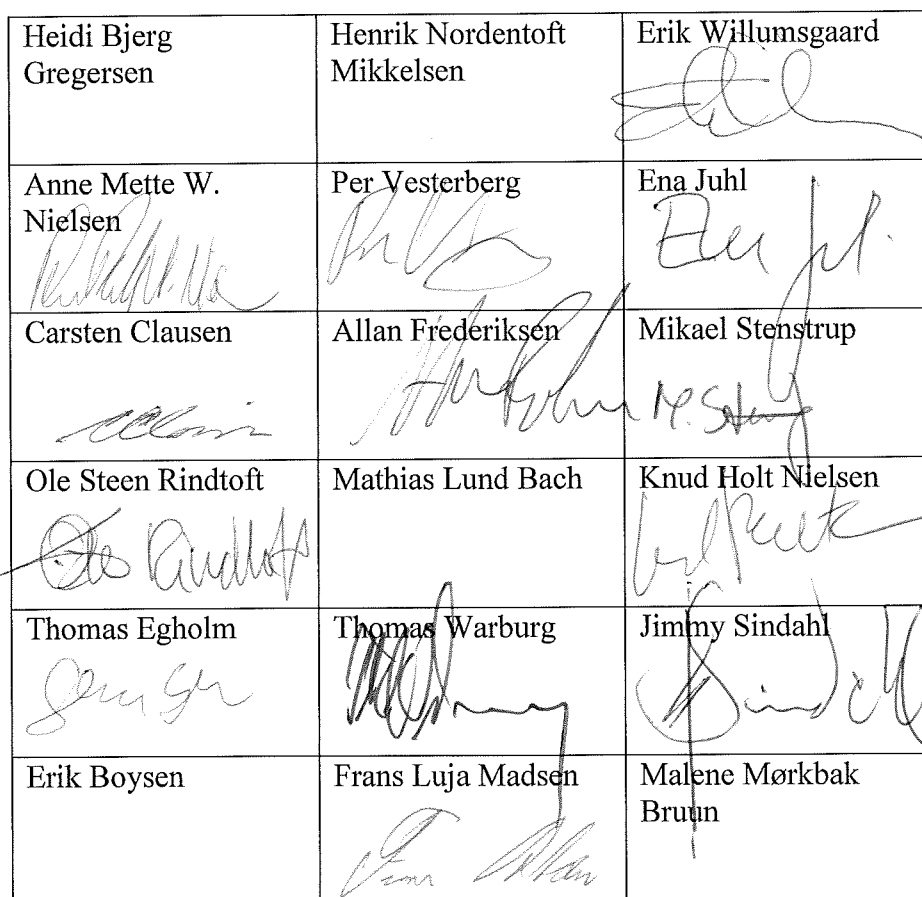 Heidi Bjerg
Gregersen
Henrik Nordentoft
Mikkelsen
Erik Willumsgaard
Anne Mette W.
Nielsen
Per Vesterberg
Ena Juhl
Carsten Clausen
Allan Frederiksen
Mikael Stenstrup
Ole Steen Rindtoft
Ole Rindtoft
Mathias Lund Bach
Knud Holt Nielsen
Thomas Egholm
Thomas Warburg
Jimmy Sindahl
Erik Boysen
Frans Luja Madsen
Malene Mørkbak
Bruun